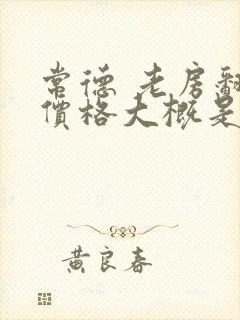 常德 老房翻
價格大概是
黃良春